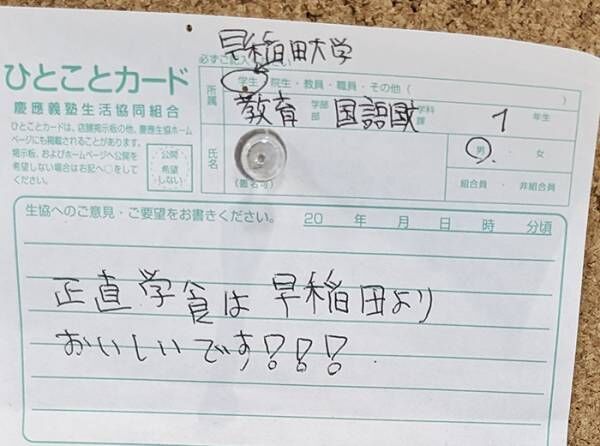 早稲田大学
ひとことカード
慶應義塾生活協同組合
ひとことカードは、店頭掲示板の他、慶應生協ホーム
ページにも掲載されることがあります。
掲示板、およびホームページへ公開を
希望しない場合はお記へ○をして
ください。
公開
希望
しない
必ずご記入
所属
学生・院生・教員・職員・その他( )
教育 学部 国語国文 学科
部 課
1 年生
氏名
(匿名可)
男・女
組合員・非組合員
生協へのご意見・ご要望をお書きください。 20 年 月 日 時 分頃
正直学食は早稲田より
おいしいです!!!